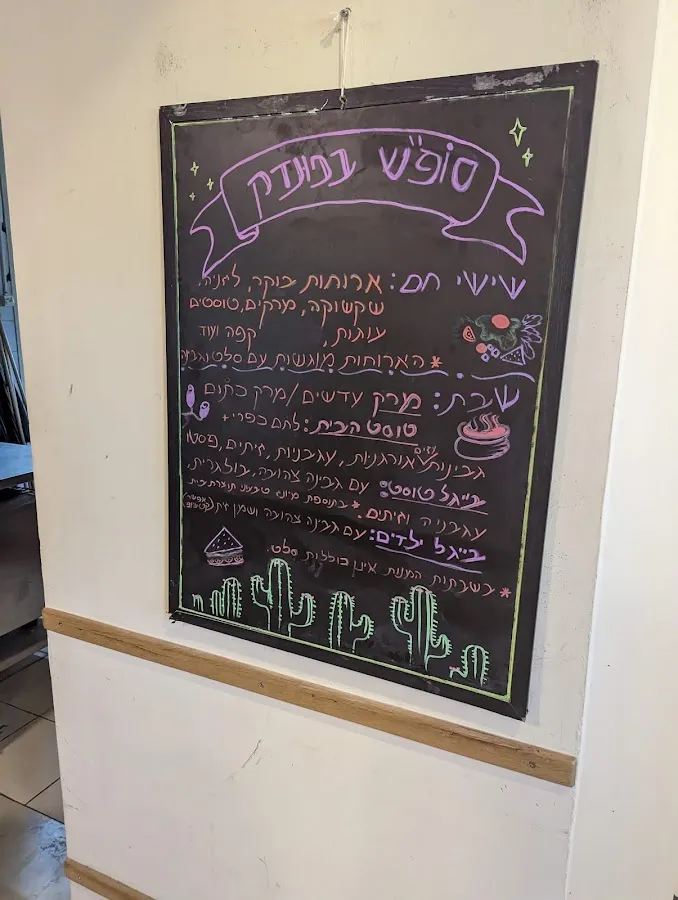 סופ"ש בפונדק
שישי חם: ארוחות בוקר, לזניה,
שקשוקה, מרקים, טוסטים
עוגות, קפה ועוד
* הארוחות מוגשות עם סלט וגבינה
שבת: מרק עדשים / מרק כתום
טוסט הבית: לחם כפרי +
גבינות עזים אורגניות, עגבניות, זיתים, פסטו
בייגל טוסט: עם גבינה צהובה, בולגרית,
עגבניה וזיתים. * בתוספת מיונז טבעוני תוצרת בית
בייגל ילדים: עם גבינה צהובה ושמן זית
* בשבתות המנות אינן כוללות סלט.